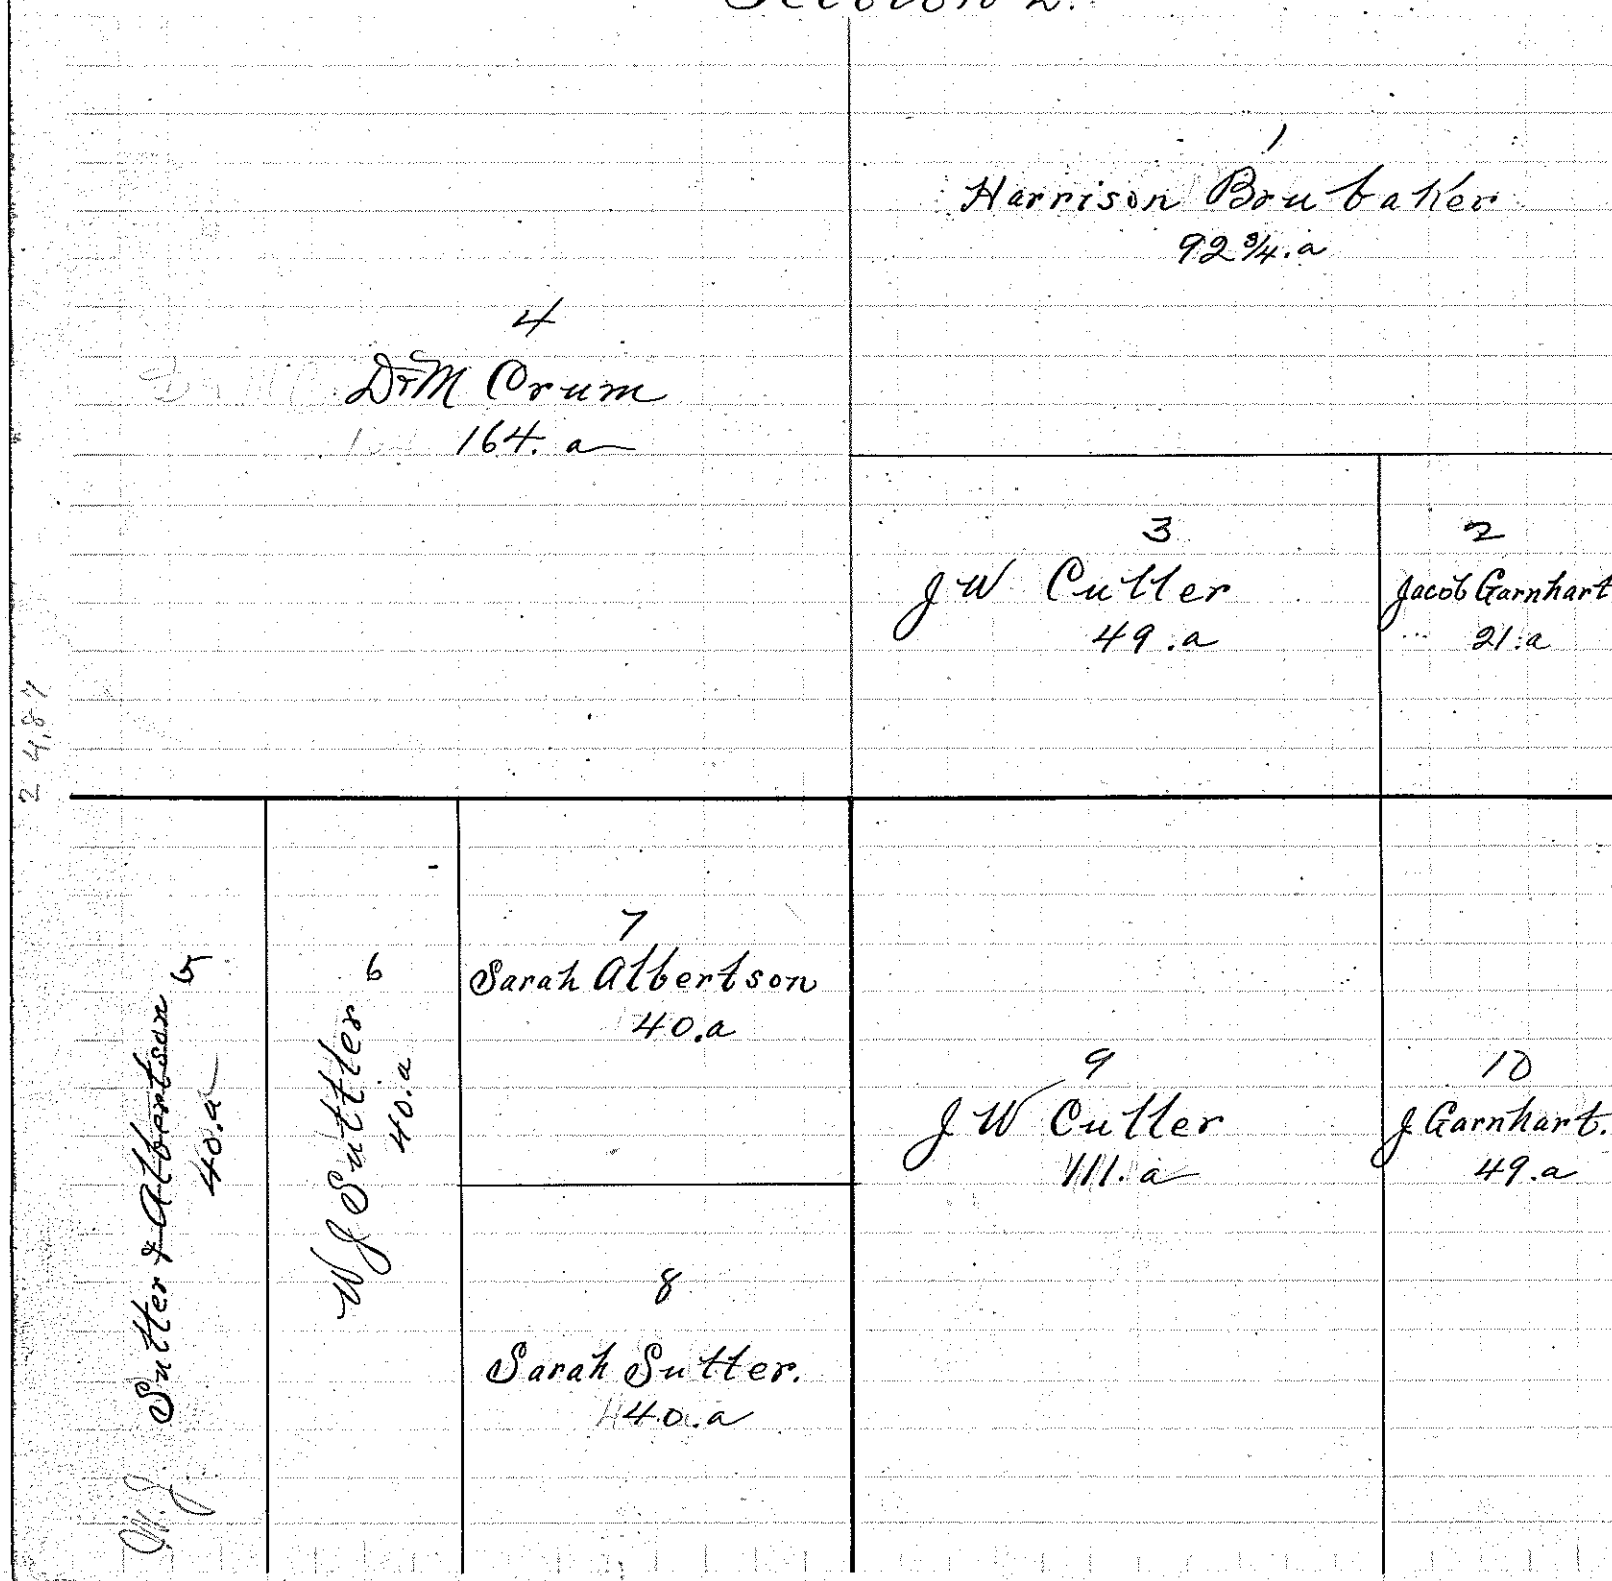 Section 2.
1
Harrison Brubaker
92 3/4. a
4
Dr M Orum
164. a
3
J W Cutler
49. a
2
Jacob Garnhart
21. a
2 4,87
5
W. J. Sutter & Albertson
40. a
6
W J Suttler
40. a
7
Sarah Albertson
40. a
8
Sarah Sutter.
40. a
9
J W Cutler
111. a
10
J Garnhart.
49. a